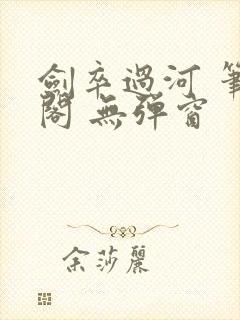 劍卒過河 筆
閣 無彈窗
余莎麗